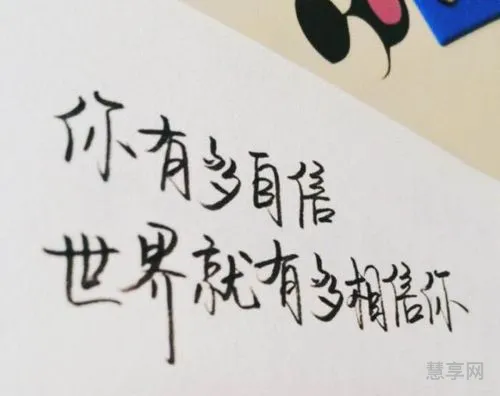 你有多自信
世界就有多相信你
慧享网